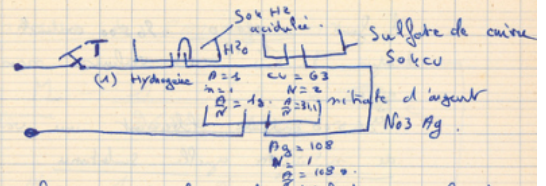 So4 H2
acidulée.
T
H2o
Sulfate de cuivre
So4cu
(1) Hydrogène
A = 1
n = 1
A/N = 1g
cu = 63
N = 2
A/N = 31,1
nitrate d'argent
No3 Ag.
Ag = 108
N = 1
A = 108